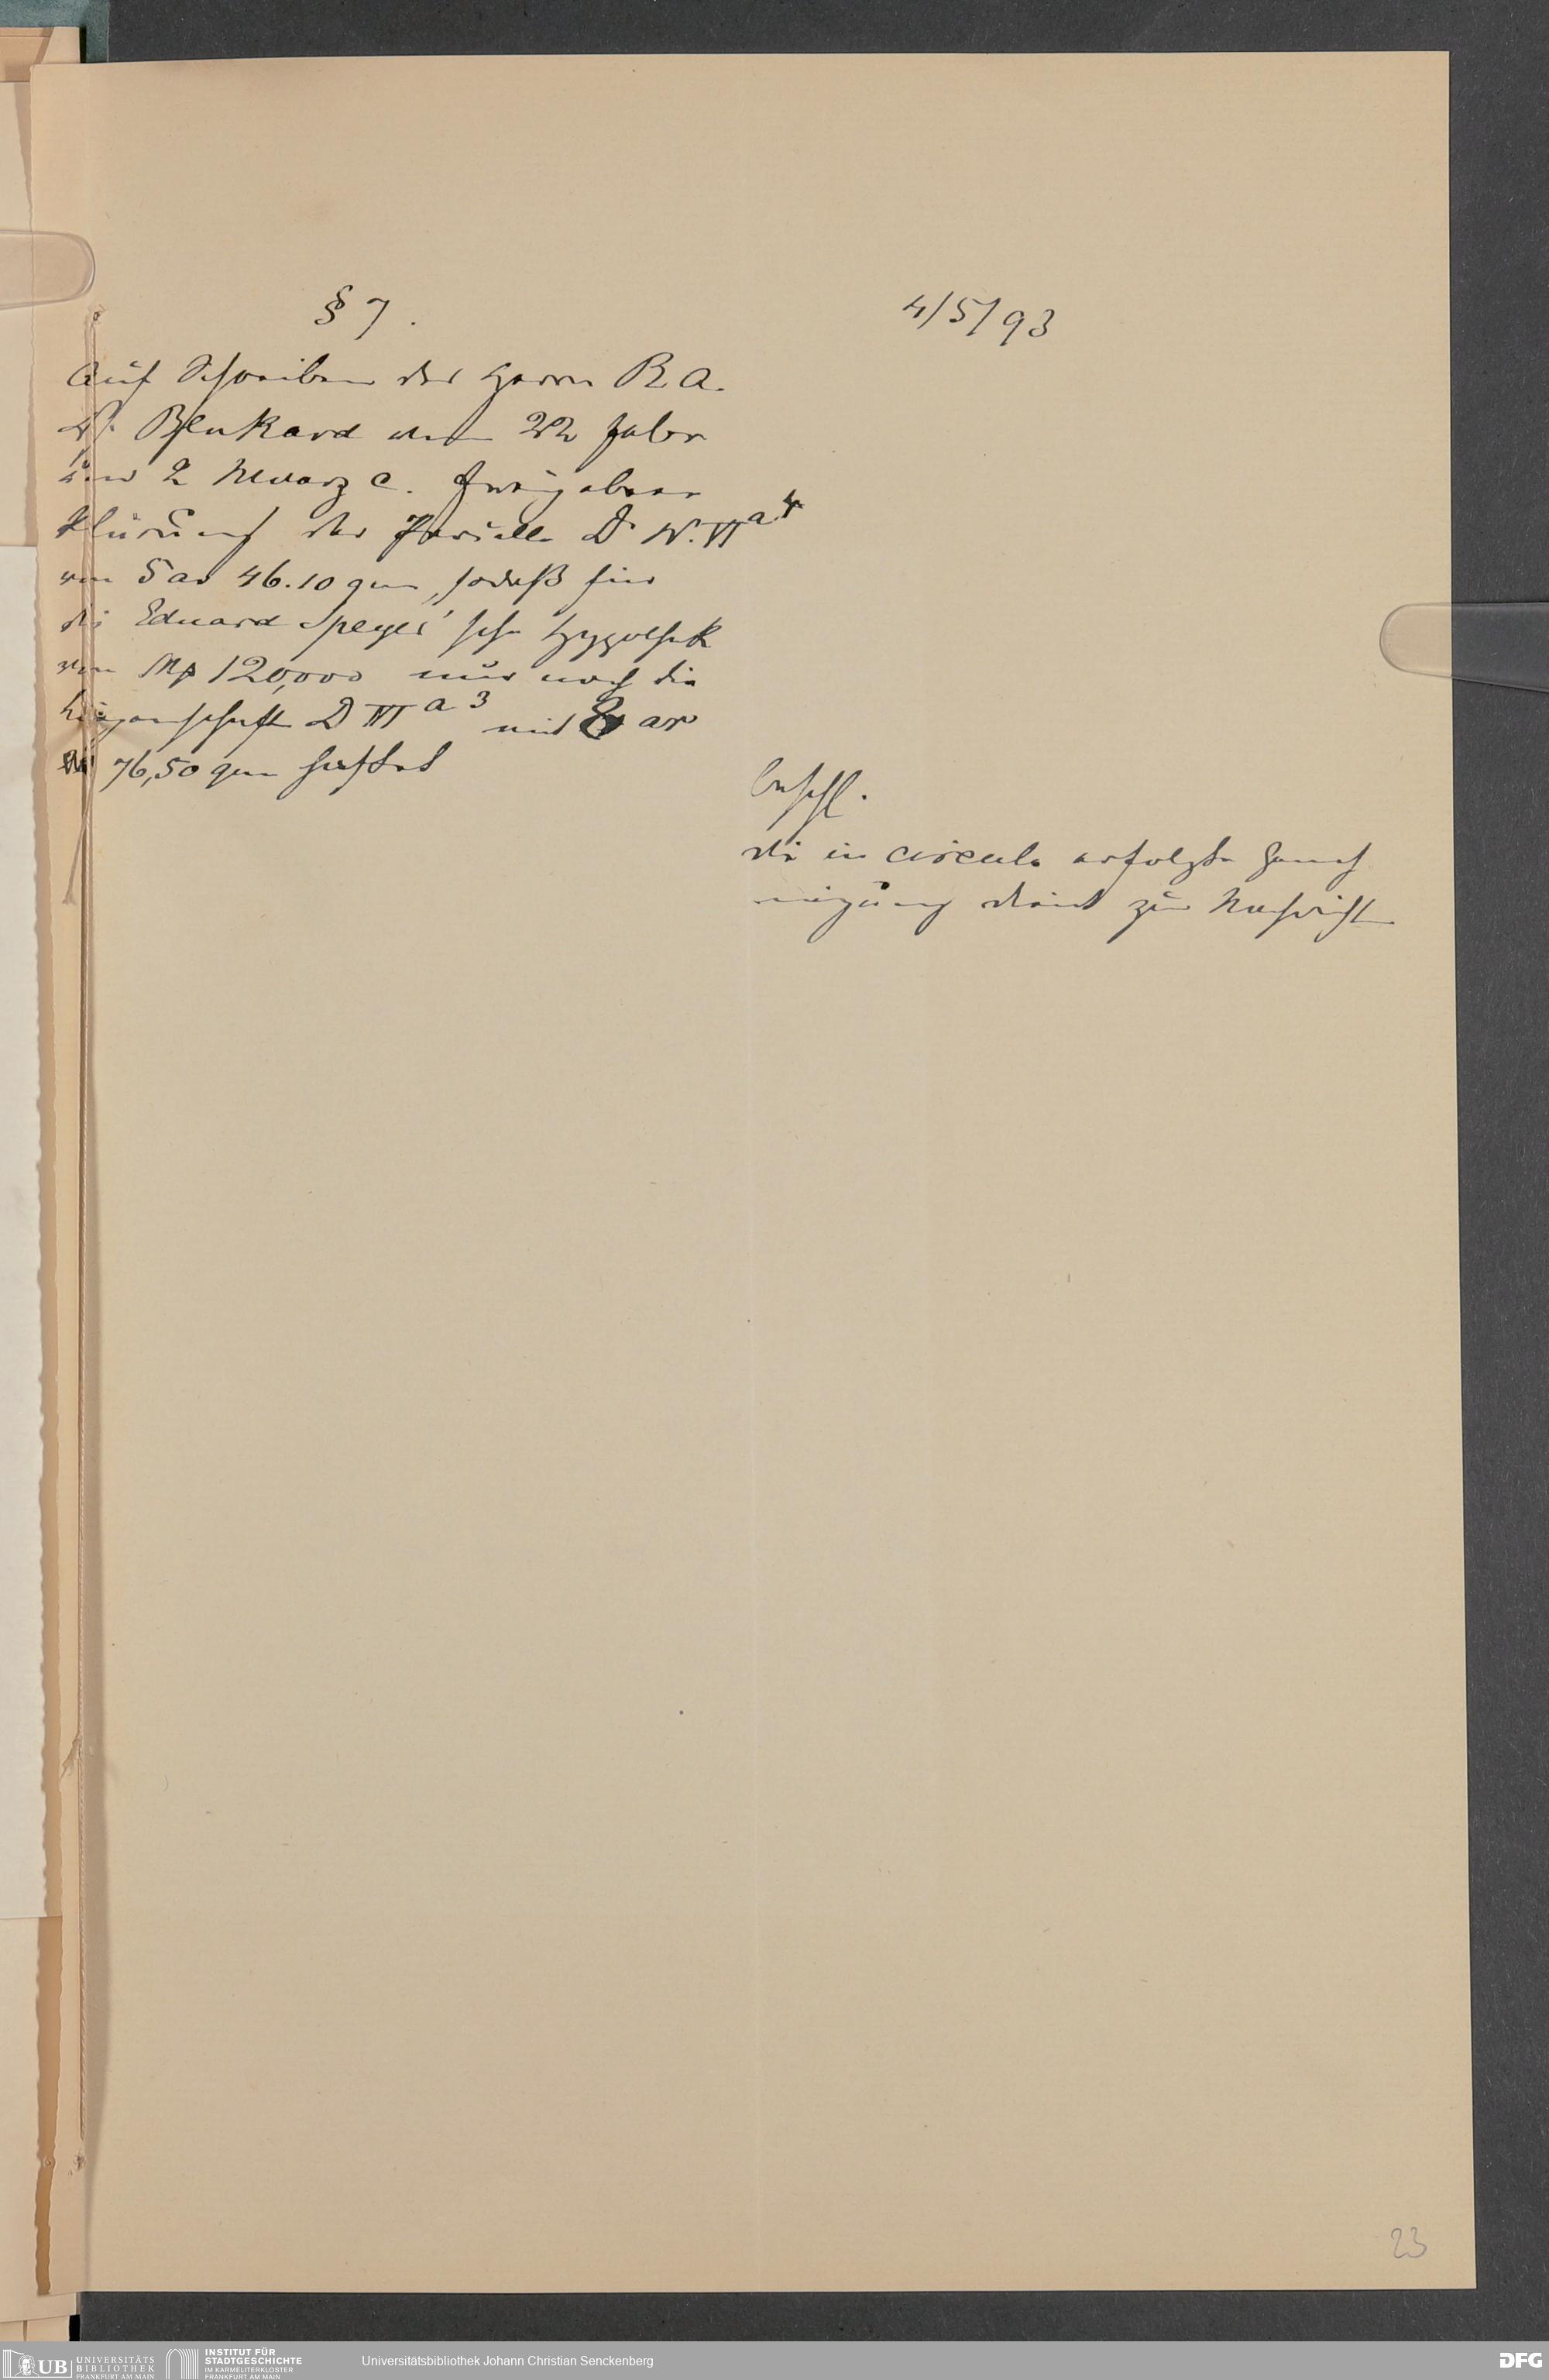 § 7.
4/5/93
Auf Schreiben des Herrn R. A.
Dr. Benkard vom 22 Febr
und 2 Maerz c. Freigabeer
klärung der Parcelle D. N. VI a 4
von 5 ar 46.10 qm, sodaß für
die Eduard Speyer'sche Hypothek
von Mk 120,000 nur noch die
Liegenschaft D VI a 3 mit 8 ar
76,50 qm haftet
beschl.
die in circulo erfolgte Geneh
migung dient zur Nachricht
23
UB UNIVERSITÄTS
BIBLIOTHEK
FRANKFURT AM MAIN
INSTITUT FÜR
STADTGESCHICHTE
IM KARMELITERKLOSTER
FRANKFURT AM MAIN
Universitätsbibliothek Johann Christian Senckenberg
DFG